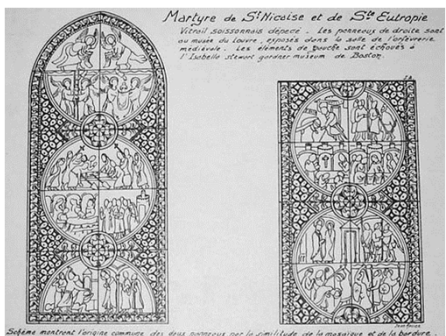 Martyre de St Nicaise et de Ste Eutropie
Vitrail soissonnais dépecé. Les panneaux de droite sont
au musée du Louvre, exposés dans la salle de l'orfèvrerie
médiévale. Les éléments de gauche sont échoués à
l'Isabelle stewart gardner museum de Boston.
Schéma montrant l'origine commune des deux panneaux par la similitude de la mosaïque et de la bordure.